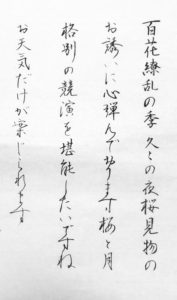 百花繚乱の季 久々の夜桜見物の
お誘いに心弾んでおります 桜と月
格別の競演を堪能したいですね
お天気だけが案じられます